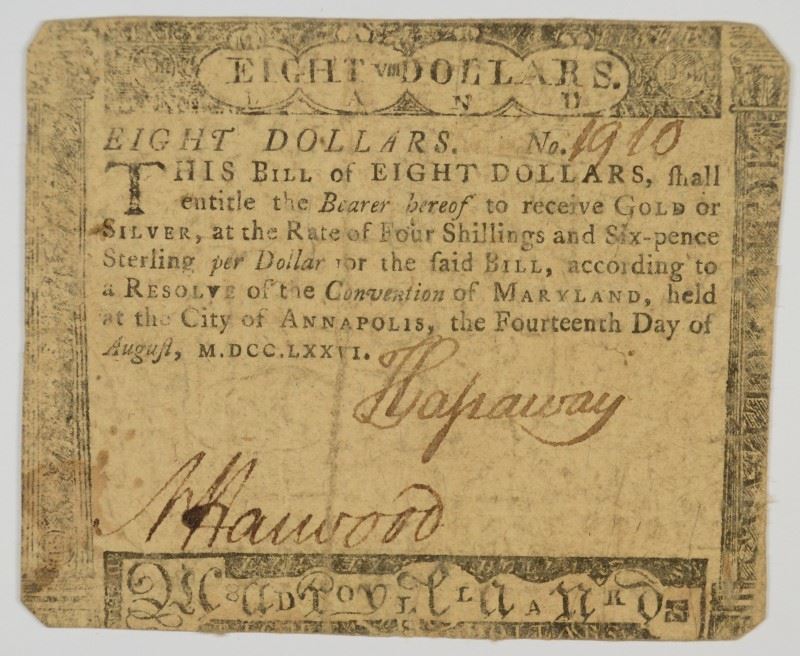 EIGHT VIII DOLLARS.
L A N D
EIGHT DOLLARS. No. 1910
THIS BILL of EIGHT DOLLARS, ſhall
entitle the Bearer hereof to receive GOLD or
SILVER, at the Rate of Four Shillings and Six-pence
Sterling per Dollar for the ſaid BILL, according to
a RESOLVE of the Convention of MARYLAND, held
at the City of ANNAPOLIS, the Fourteenth Day of
Auguſt, M.DCC.LXXVI.
Haſsaway
N Harwood